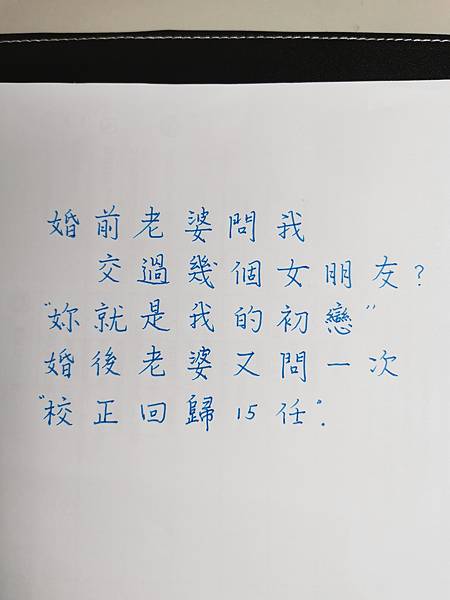 婚前老婆問我
交過幾個女朋友?
"妳就是我的初戀"
婚後老婆又問一次
"校正回歸15任".